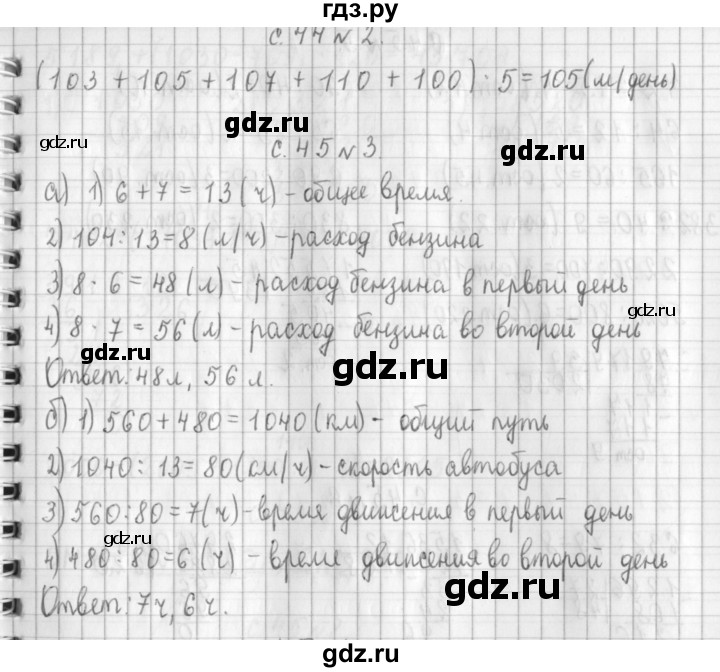 гдз.ру
с. 44 № 2.
(103 + 105 + 107 + 110 + 100) : 5 = 105 (м/день)
gdz.ru
gdz.ru
gdz.ru
с. 45 № 3.
а) 1) 6 + 7 = 13 (ч) - общее время.
2) 104 : 13 = 8 (л/ч) - расход бензина
3) 8 · 6 = 48 (л) - расход бензина в первый день
gdz.ru
4) 8 · 7 = 56 (л) - расход бензина во второй день
gdz.ru
gdz.ru
Ответ: 48 л, 56 л.
б) 1) 560 + 480 = 1040 (км) - общий путь
2) 1040 : 13 = 80 (см/ч) - скорость автобуса
3) 560 : 80 = 7 (ч) - время движения в первый день
gdz.ru
4) 480 : 80 = 6 (ч) - време движения во второй день
gdz.ru
Ответ: 7 ч, 6 ч.
gdz.ru